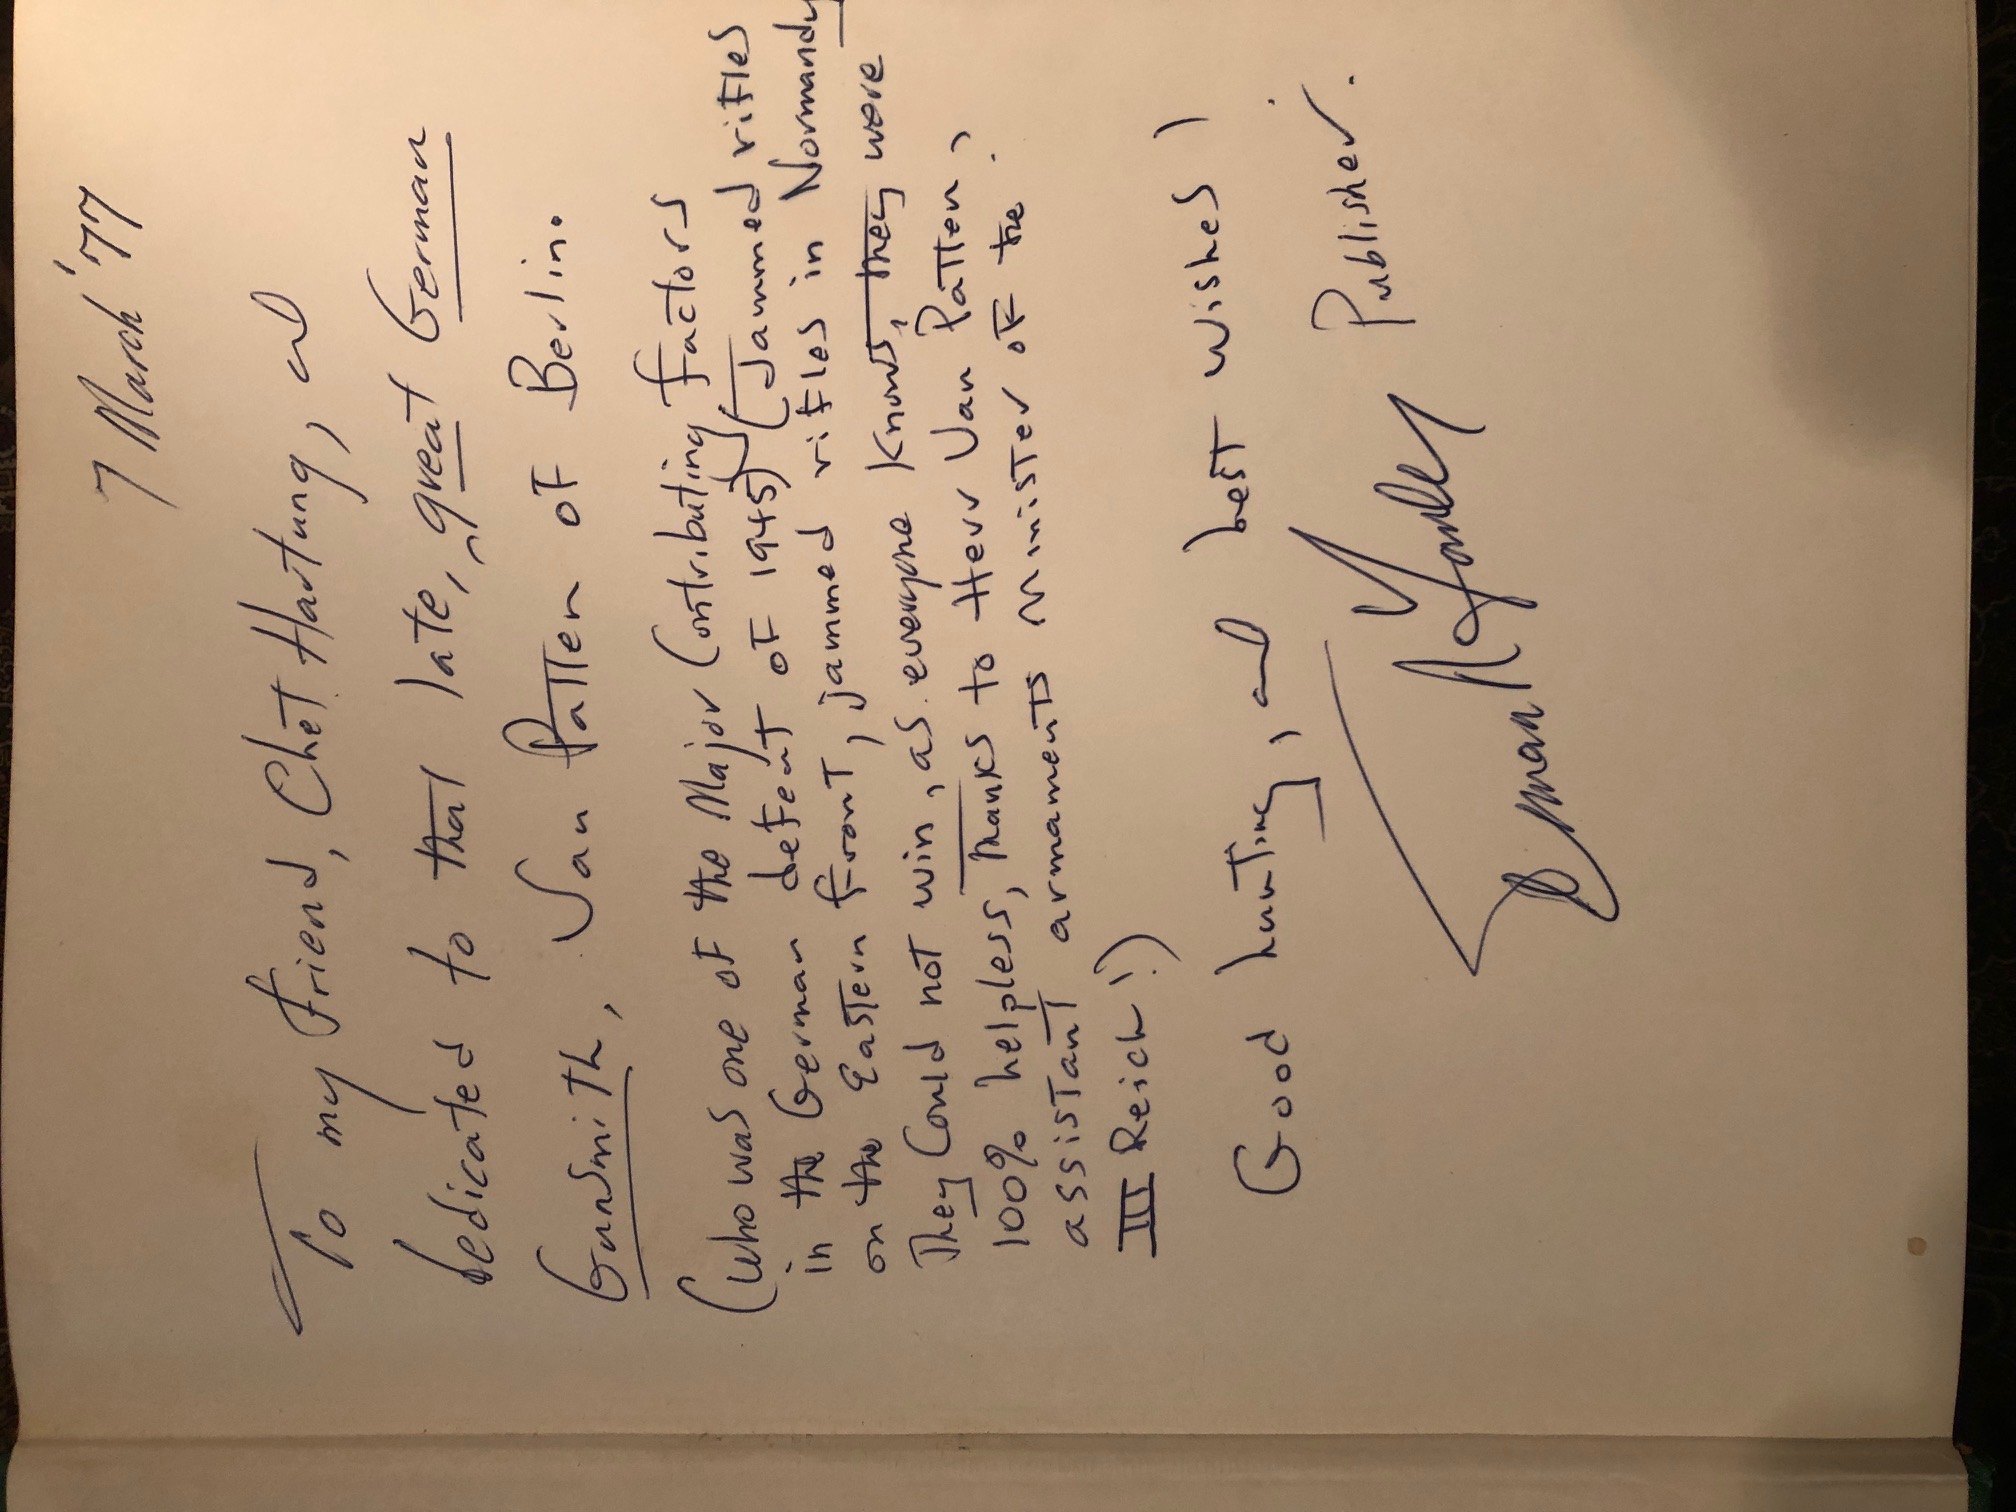 7 March '77
To my Friend, Chet Hartung, and
dedicated to that late, great German
Gunsmith, Van Patten of Berlin.
(who was one of the Major Contributing factors
in the German defeat of 1945) (Jammed rifles
on the Eastern front, jammed rifles in Normandy
They Could not win, as everyone knows, they were
100% helpless, Thanks to Herr Van Patten,
assistant armaments minister of the
III Reich!)
Good hunting, and best wishes!
Publisher.